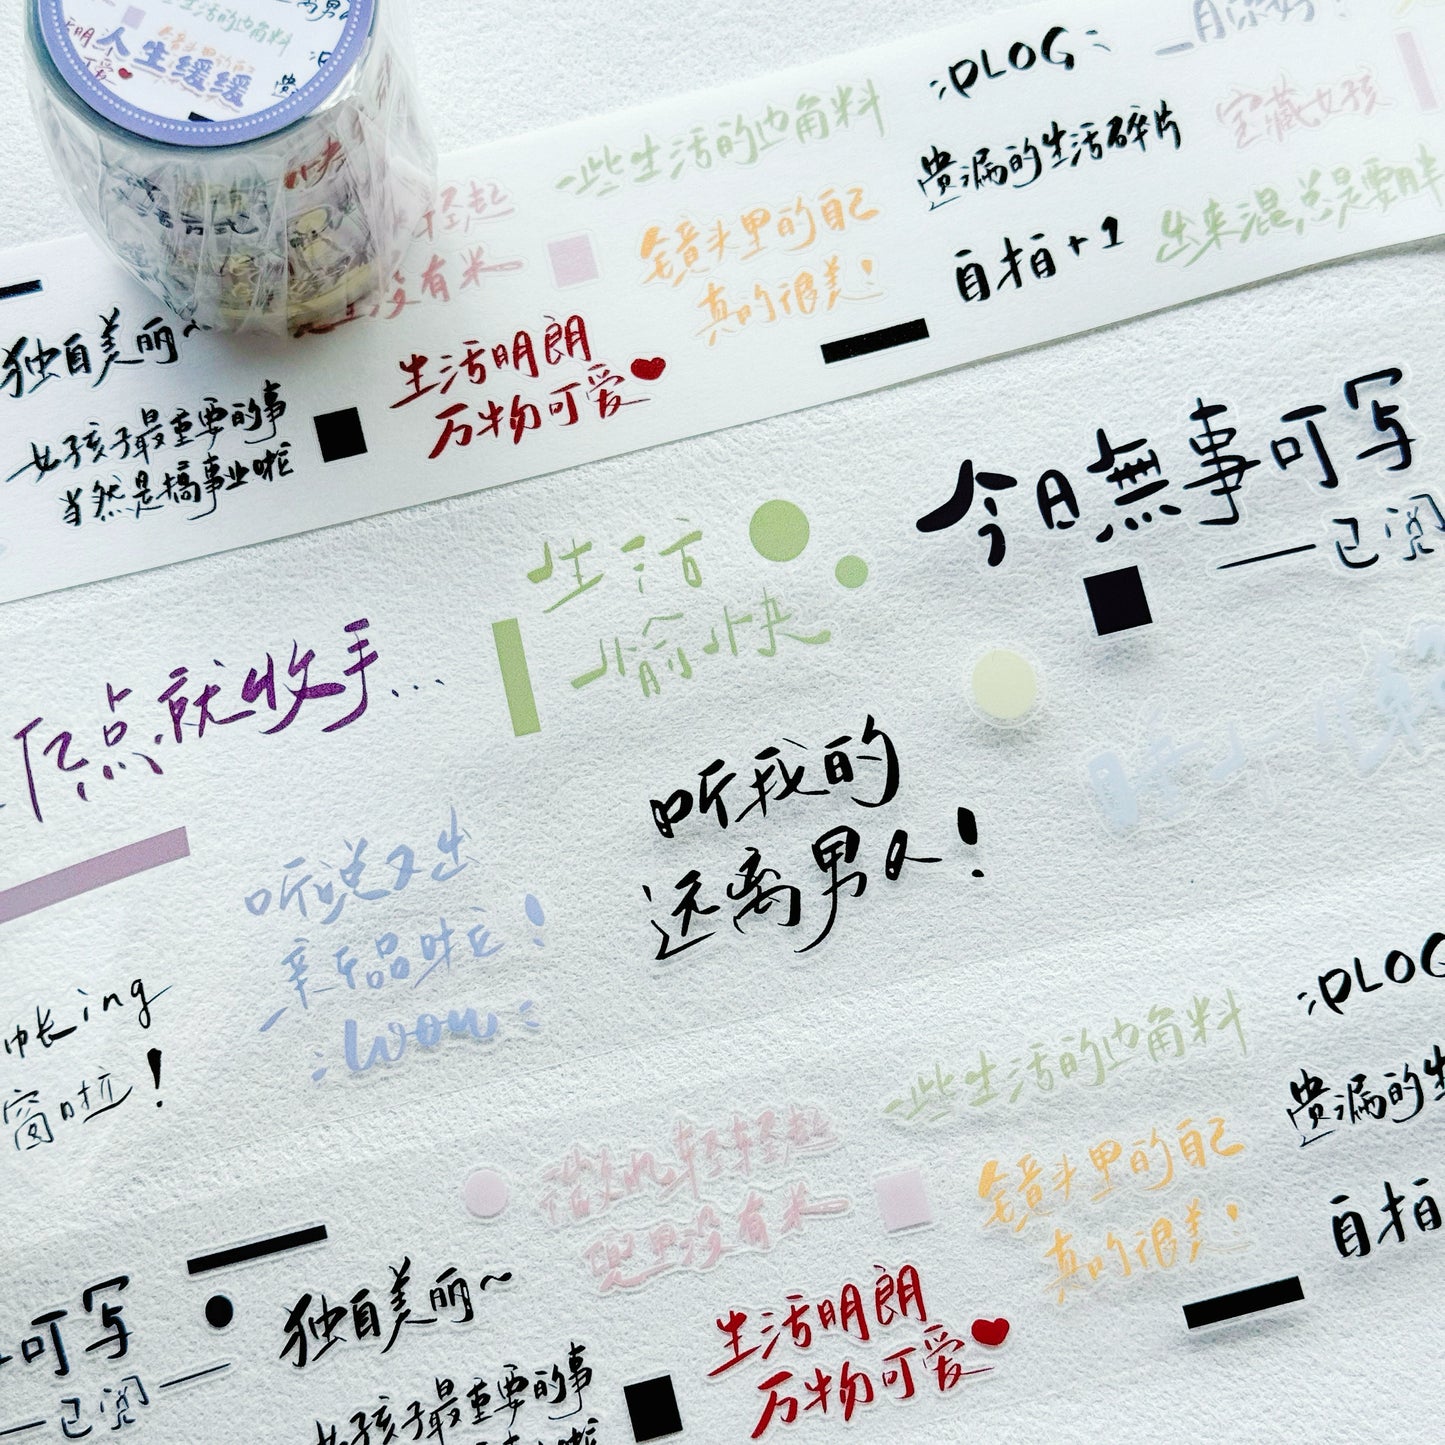 生活的边角料
人生缓缓
一些生活的边角料
:PLOG:
遗漏的生活碎片
宝藏女孩
轻起
没有米
镜头里的自己
真的很美!
自拍+1
出来混总是要胖
独自美丽~
生活明朗
万物可爱
女孩子最重要的事
当然是搞事业啦
今日無事可写
——已阅
生活
愉快
点就收手...
听我的
远离男人!
听说又出
新品啦!
:wow:
帐ing
窗啦!
一些生活的边角料
:PLOG
遗漏的生
微风轻轻起
兜里没有米
镜头里的自己
真的很美!
自拍
可写
——已阅——
独自美丽~
生活明朗
万物可爱
女孩子最重要的事